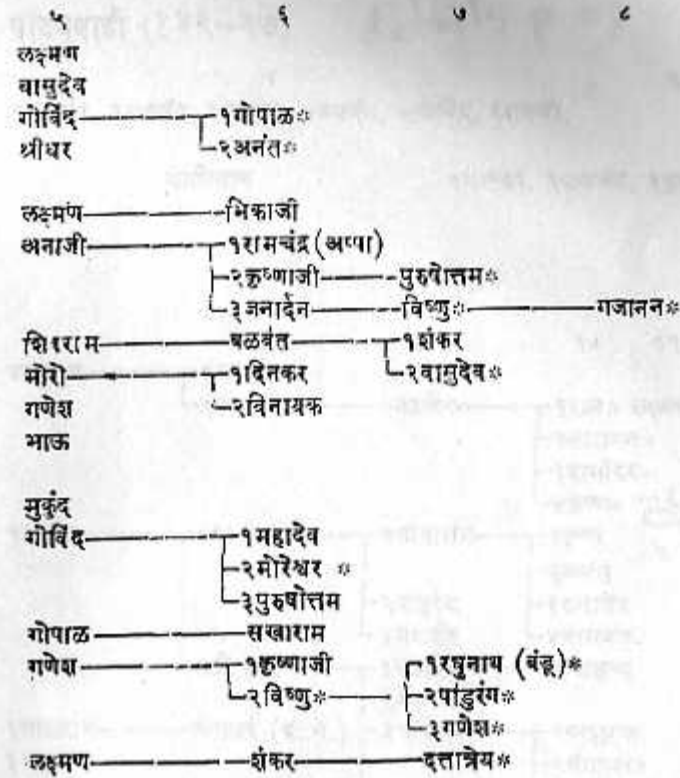 ५ ६ ७ ८
लक्ष्मण
वासुदेव
गोविंद १गोपाळ*
श्रीधर २अनंत*
लक्ष्मण भिकाजी
अनाजी १रामचंद्र (अप्पा)
२कृष्णाजी पुरुषोत्तम*
३जनार्दन विष्णु* गजानन*
शिवराम बळवंत १शंकर
मोरो १दिनकर २वासुदेव*
गणेश २विनायक
भाऊ
मुकुंद
गोविंद १महादेव
२मोरेश्वर *
३पुरुषोत्तम
गोपाळ सखाराम
गणेश १कृष्णाजी १रघुनाथ (बंडू)*
२विष्णु* २पांडुरंग*
३गणेश*
लक्ष्मण शंकर दत्तात्रेय*